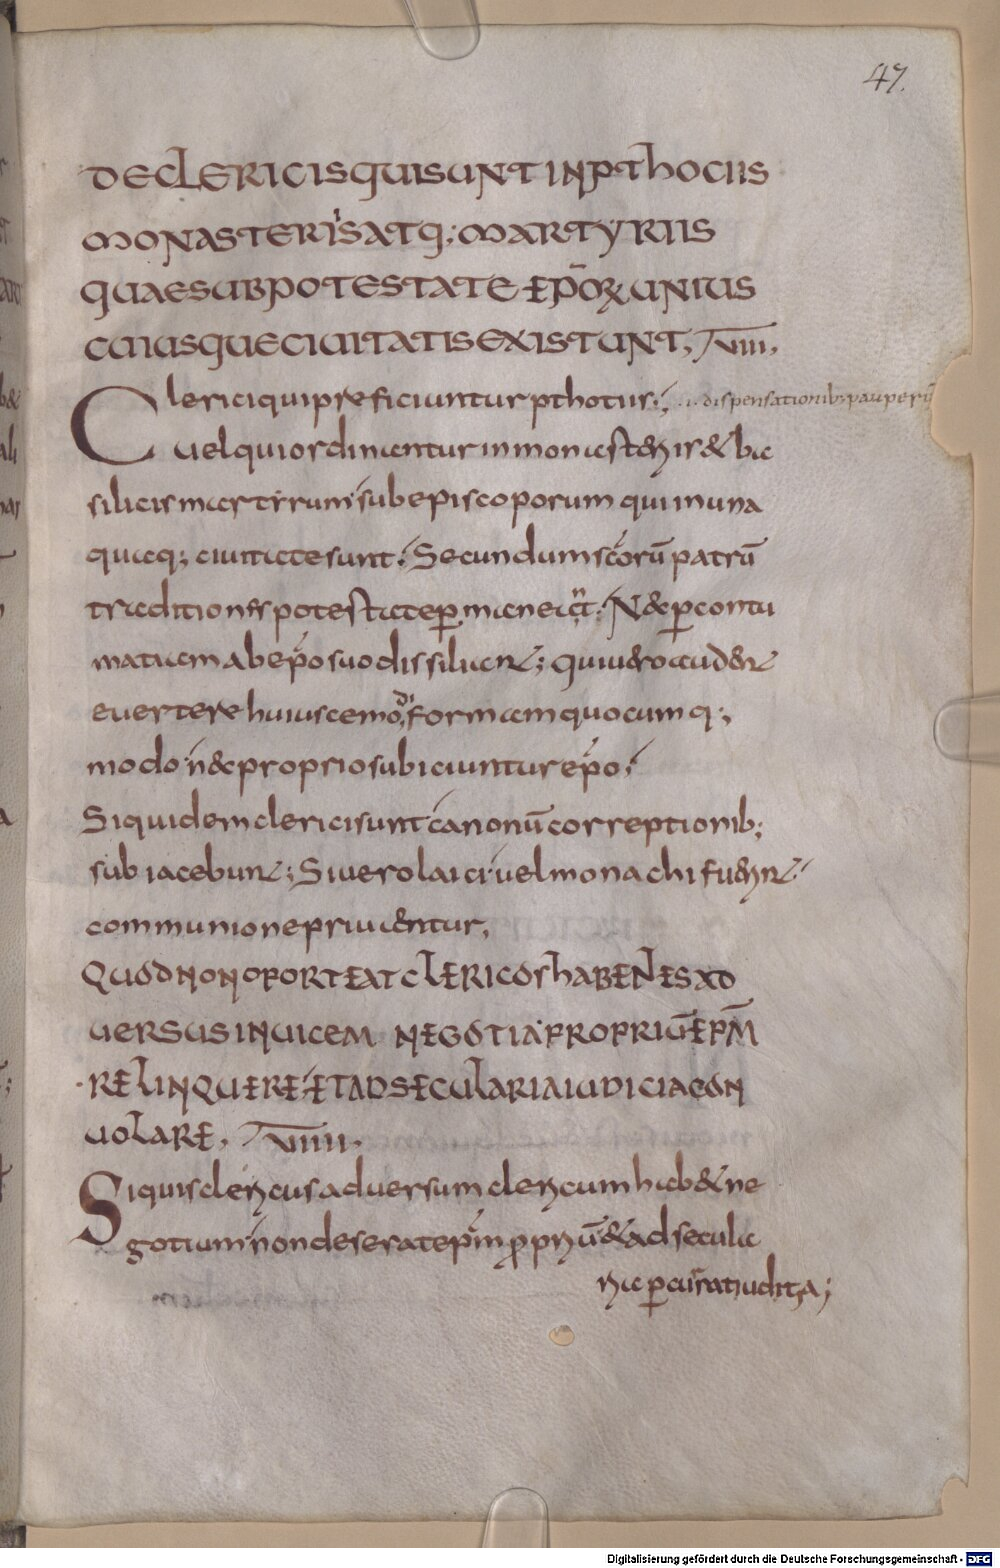 47.
DE CLERICIS QUI SUNT IN PTHOCIIS
MONASTERIIS ATQ; MARTYRIIS
QUAE SUB POTESTATE EPŌRꝜ UNIUS
CUIUSQUE CIUITATIS EXISTUNT, VIII,
Clerici qui preficiuntur pthotiis; .i. dispensationib; pauperū
uel qui ordinantur in monasteriis & ba
silicis martirum sub episcoporum qui in una
quaq; ciuitate sunt. Secundum scōrū patrū
traditiones potestate ꝑmaneant. N& ꝑ contu
matiam ab ep̄o suo dissiliant; qui uero audent
euertere huiuscemodi formam quocumq;
modo n& proprio subiciuntur ep̄o;
Siquidem clerici sunt canonū correptionib;
subiacebunt; Si uero laici uel monachi fuerint
communione priuentur,
QUOD NON OPORTEAT CLERICOS HABENTES AD
UERSUS INUICEM NEGOTIA PROPRIŪ EPM̄
RELINQUERE ET AD SECULARIA IUDICIA CON
UOLARE, VIIII,
Si quis clericus aduersum clericum hab& ne
gotium non deserat ep̄m ꝓpriū & ad secula
ria ꝑcurrat iuditia;
Digitalisierung gefördert durch die Deutsche Forschungsgemeinschaft - DFG